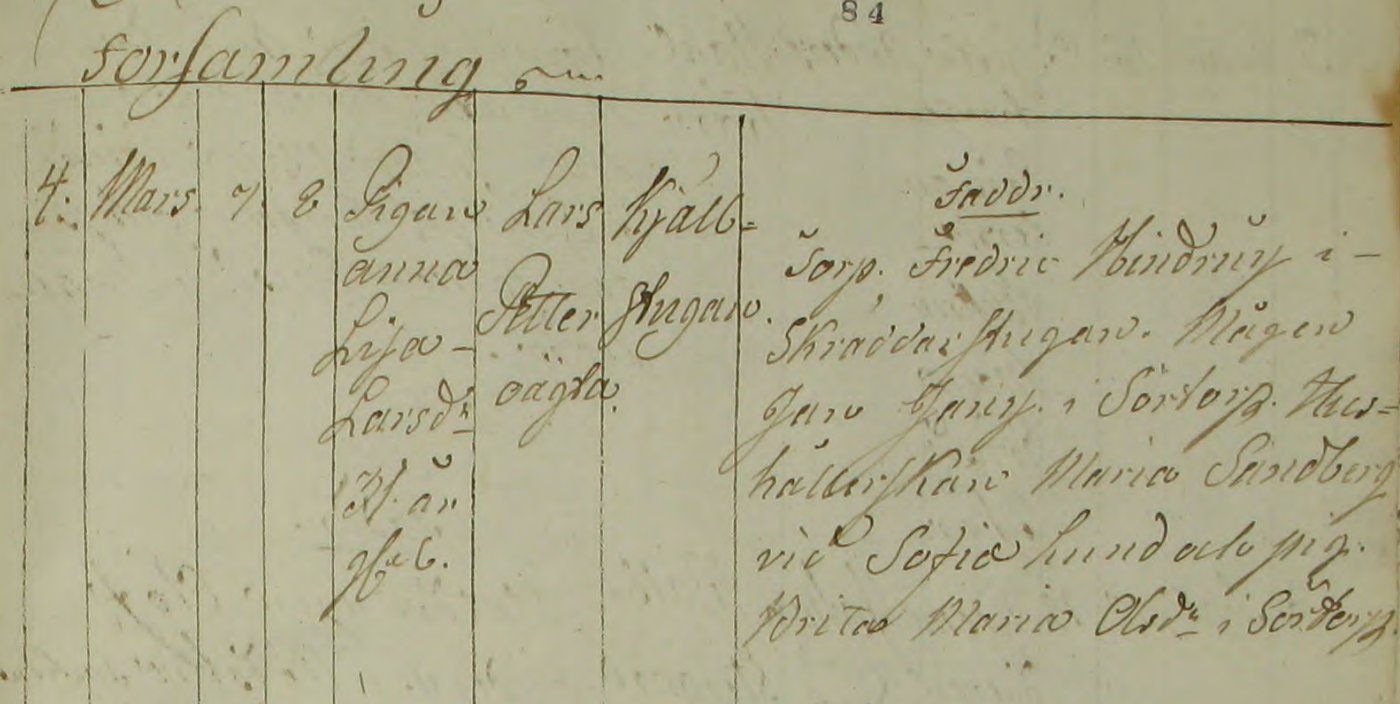 84
Forsamling
4. Mars. 7. 8
Pigan
Anna
Lisa
Larsdr
31 år
Lars
Petter
oägta.
Kjäll=
stugan.
Faddr.
Torp. Fredric Hindrics i
Skräddarstugan. Mågen
Jan Jans. i Sörtorp. Hus=
hållerskan Maria Sandberg
vid Sofia Lund och pig.
Brita Maria Olsdr i Sörtorp